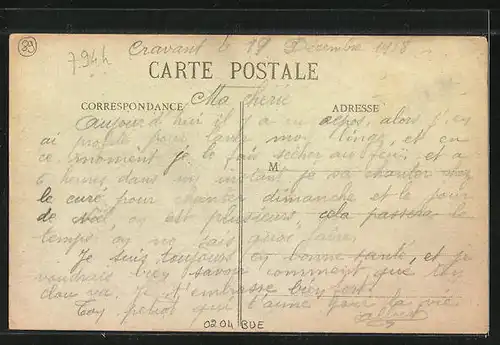 89
7944
Cravant le 19 Décembre 1918
CARTE POSTALE
CORRESPONDANCE
Ma chérie
ADRESSE
Aujourd'hui il y a eu repos, alors j'en
ai profité pour laver mon linge, et en
ce moment je le fais sécher au feu, et a
M
6 heures dans un instant je va chanter chez
le curé pour chanter dimanche et le jour
de Noël, on est plusieurs cela passera le
temps on ne sais quoi faire.
Je suis toujours en bonne santé, et je
voudrais bien savoir comment que ton
clou va. Je t'embrasse bien fort.
Ton petiot qui t'aime pour la vie
Albert
0204 BDE